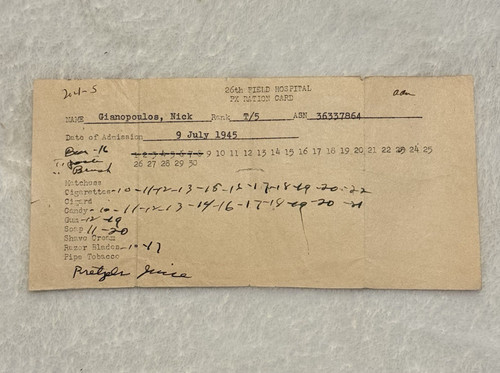 204-5
26th FIELD HOSPITAL
PX RATION CARD
adm
NAME Gianopoulos, Nick Rank T/5 ASN 36337864
Date of Admission 9 July 1945
-16 1 2 3 4 5 6 7 8 9 10 11 12 13 14 15 16 17 18 19 20 21 22 23 24 25
26 27 28 29 30
Brush
Matches
Cigarettes-10-11-12-13-15-12-17-18-19-20-22
Cigars
Candy-10-11-12-13-14-16-17-18-19-20-21
Gum-12-19
Soap 11-20
Shave Cream
Razor Blades-10-17
Pipe Tobacco
Pretzels Juice